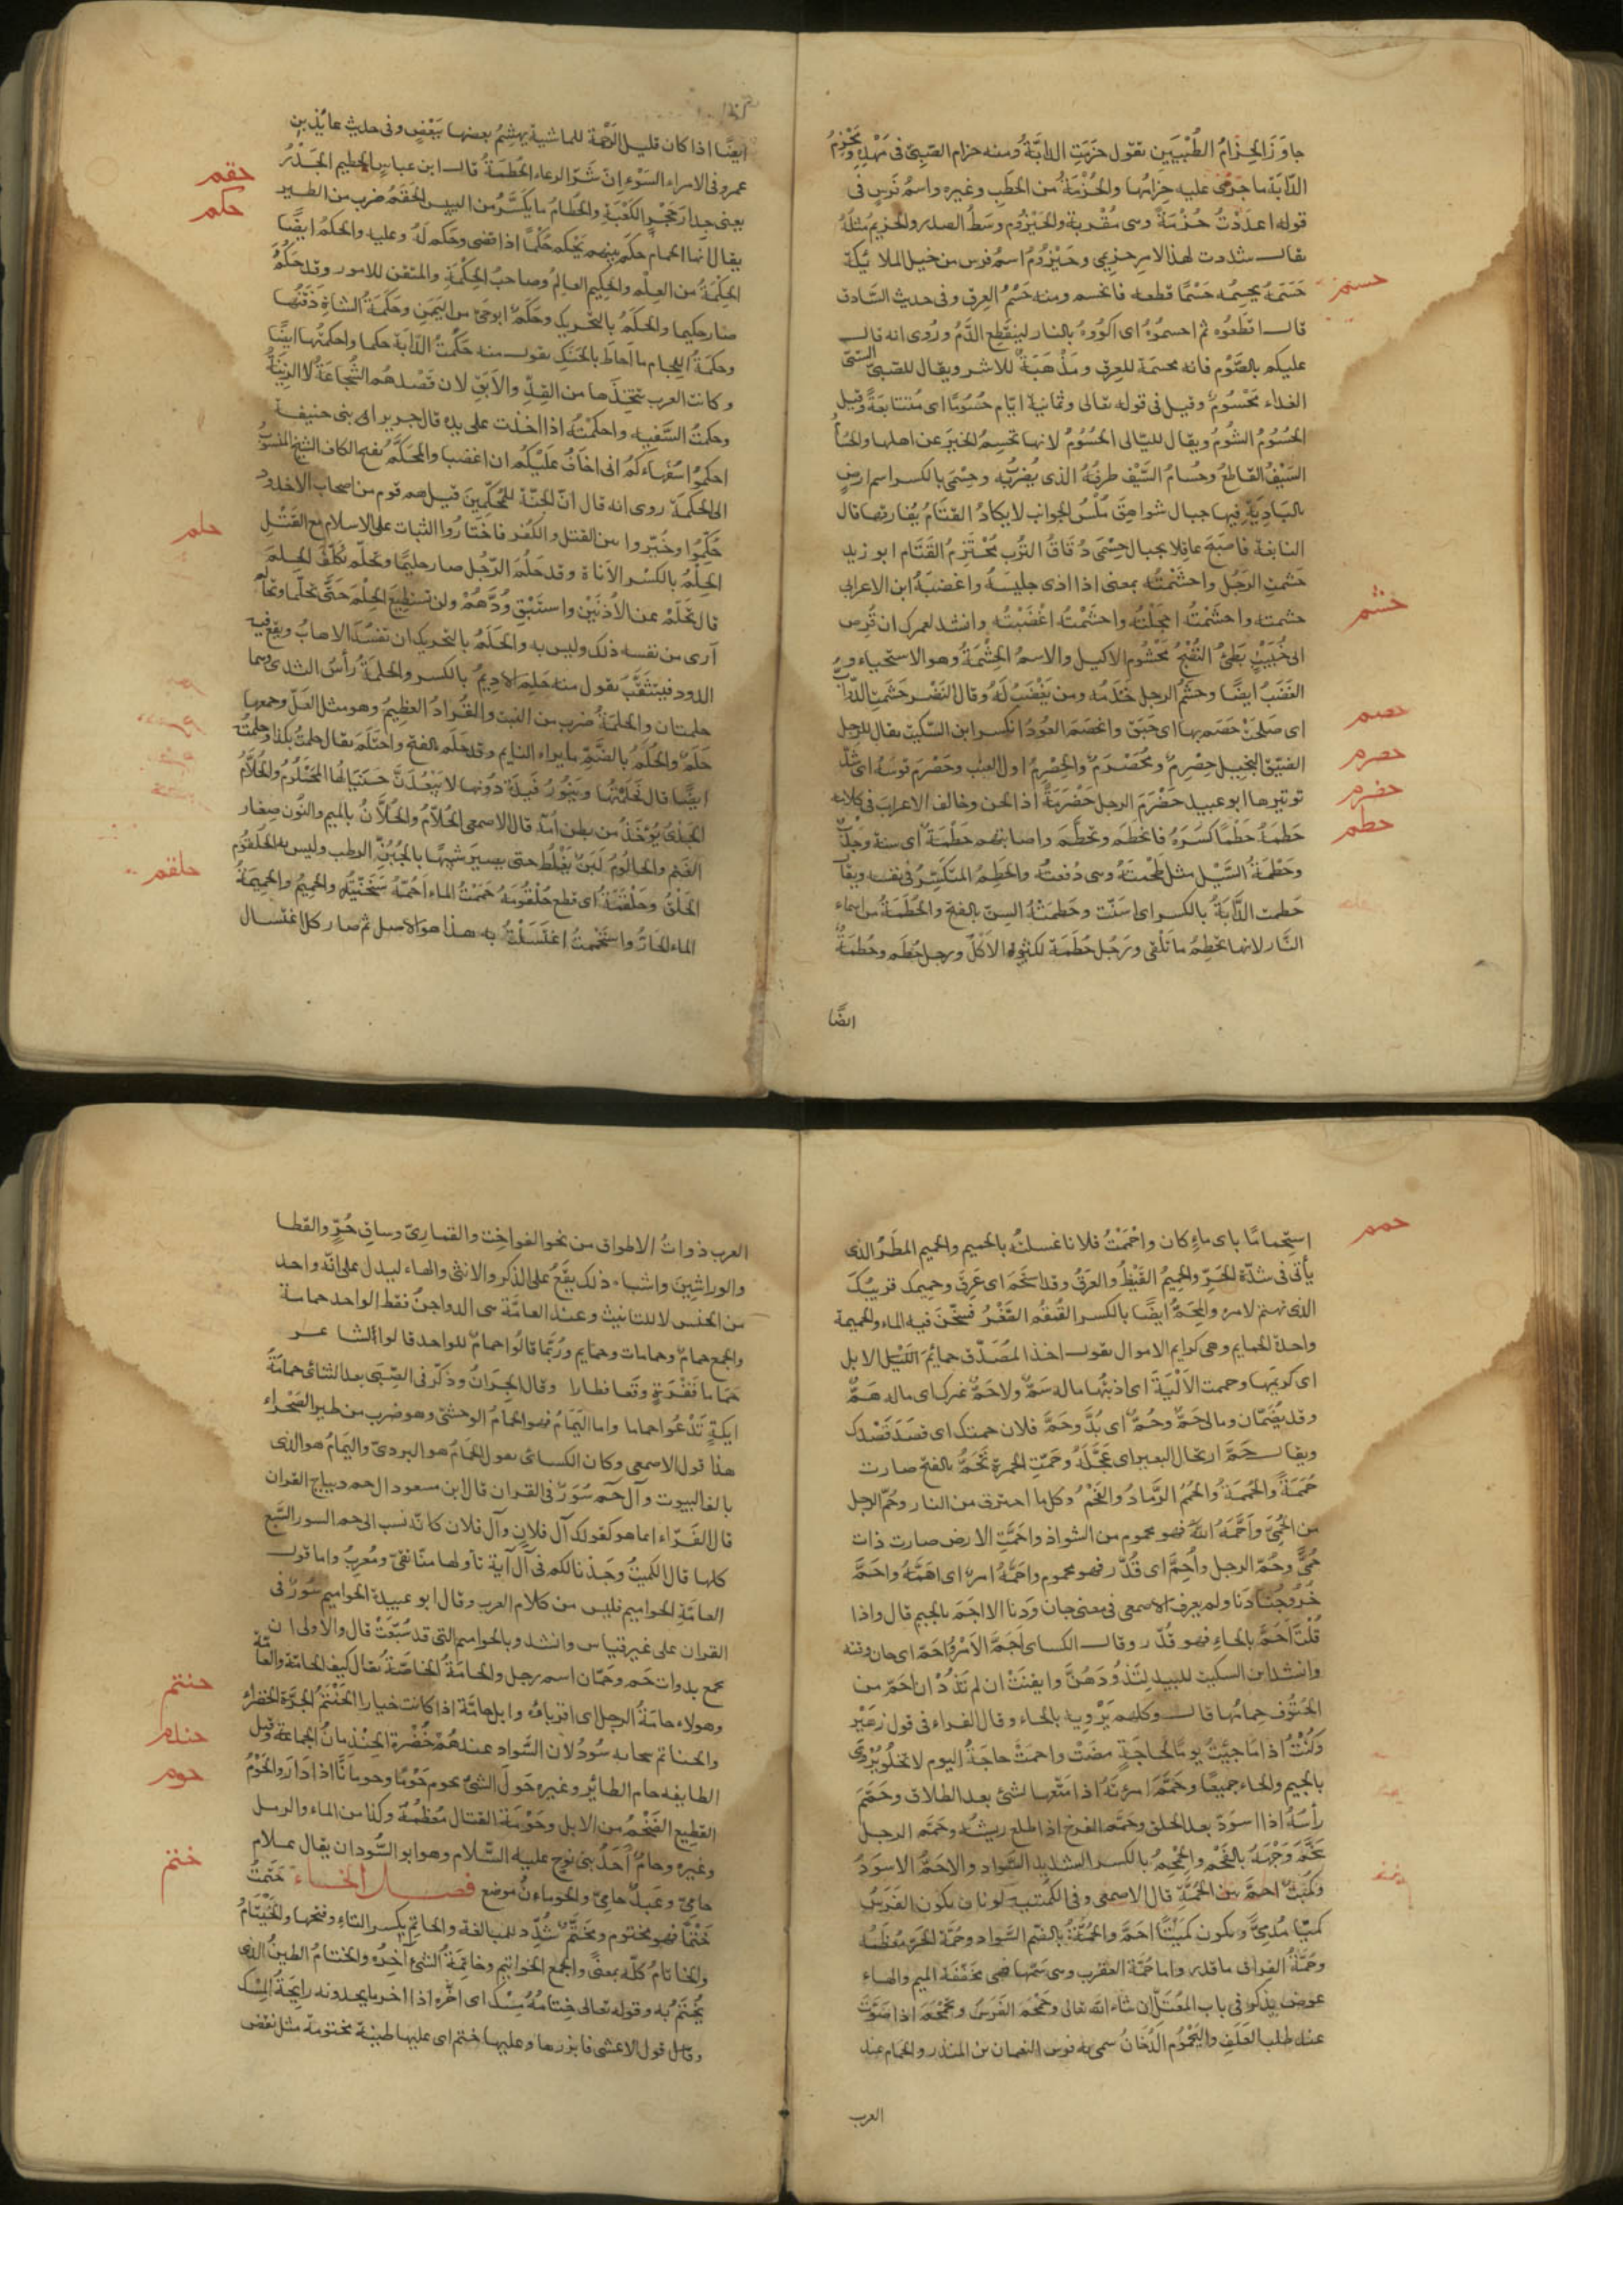 جاوَزَ الحِزَامُ الطُّبْيَيْنِ تقول حَزَمْتِ الدابّةَ ومنه حزام الصَّبِيّ فى مَهْدِهِ ومَحْزِمُ
الدّابَة ما جَرَى عليه حِزامُها والحُزْمَةُ من الحَطَبِ وغيره واسمُ فَرَسٍ فى
قوله اعدَدْتُ حُزْمَةَ وهى مُقْربة والحَيْزُوم وسَطُ الصدر والحَزيم مثلهُ
يقال شددت لهذا الامر حزيمى وحَيْزُومُ اسم فرس من خيل الملائكة
حسم
حَسَمَهُ يحسِمُه حَسْمًا قطعه فانحسم ومنه حَسْمُ العِرق وفى حديث السَّارق
قال اقطَعُوه ثم احسمُوهُ اى اكوُوهُ بالنار لينقَطِع الدَّمُ ورُوى انه قال
عليكم بالصَّوْم فانه محسمَة للعِرق ومَذْهَبَةٌ للاشر ويقال للصَّبىّ السّيّئ
الغذاء مَحْسُومٌ وقيل فى قوله تعالى وثمانية ايّام حُسُومًا اى مُتتابعَةً وقيل
الحُسُوُمُ الشُّومُ ويقال لليالى الحُسُوُمُ لانها تحسِمُ الخيرَ عن اهلها والحُسَامُ
السَيْفُ القاطعُ وحُسامُ السَّيْف طرفُهُ الذى يُضرَبُ به وحِسْمَى بالكسر اسم ارضٍ
بالبَادِيَةِ فيها جبال شواهِقَ مُلْسُ الجوانب لا يكادُ القتَامُ يُفارقها قال
النابغة فاصبَحَ عاقِلا بجبال حِسْمَى دُقَاقُ التُّرب مُحْتَزِمُ القَتَام ابو زيد
حشم
حَشمتِ الرَجُلَ واحشَمْتُه بمعنى اذا اذى جليسَهُ واغضبَهُ ابن الاعرابى
حشمته واحشَمْتُهُ اخجَلْتُه واحشَمْتُه اغْضَبْتُه وانشد لعمرك ان قُرص
الى خُبَيْبٍ بَطِئُ النُّضْجُ مَحْشُوم الاكيل والاسمُ الحِشْمَةُ وهو الاستحياء و
الغَضَبُ ايضًا وحَشَمُ الرجل خَدَمُه ومن يَغْضَبُ لَهُ وقال النَضْر حَشَمَتِ الدّوابُّ
حصم
اى صَلَحَتْ حَصَم بها اى حَبَقَ وانحصَمَ العوُدُ انكسر ابن السّكيت يقال للرجل
حصرم
الضيّق البخيل حِصْرِمٌ ومُحَصْرَمٌ والحِصْرِمُ اول العنب وحَصْرَمَ قوسَهُ اى شدّ
حضرم
توتيرها ابو عبيد حَضْرَمَ الرجل حَضْرَمَةً اذا لحن وخالف الاعرابَ فى كلامه
حطم
حَطمَهُ حَطْمًا كسَرَهُ فانحطَمَ وتحطَّمَ واصابتهم حَطْمَةٌ اى سنة وجَدْبٌ
وحَطْمَةُ السَّيْلِ مثل طَحْمَتهُ وهى دُفعتُهُ والحَطِمُ المتكَسِّرُ فى نفسه ويقال
حَطمت الدَّابَةُ بالكسر اى اسَنّت وحَطمتْهُ السِنّ بالفتح والحُطَمَةُ من اسماء
النّار لانها تحَطِمُ ما تَلْقَى ورَجُل حُطَمَة لكثيره الاَكْل ورجل حُطَم وحُطَمَةُ
ايضًا
ايضًا اذا كان قليل الرَّحْمَة للماشية يهشِمُ بعضها ببَعْضٍ وفى حديث عائذ بن
عمرو فى الامراء السَوْء اِنّ شَرّ الرعاء الحُطَمَةُ قال ابن عباس الحطيم الجَدْرُ
حقم
يعنى جدار حَجْرِ الكَعْبَةِ والحُطامُ ما يَكَسَّرُ من اليبيس الحَقمُ ضرب من الطير
حكم
يقال انها الحمام حكم بينهم يَحْكم حُكْمًا اذا قضى وحكم لَهُ وعليه والحكمُ ايضًا
الحِكْمَةُ من العِلْم والحكيم العالِمُ وصاحبُ الحِكْمَةِ والمتقن للامور وقد حَكُمَ
صار حكيما والحَكَمُ بالتحريك وحَكَمٌ ابو حىّ من اليَمَنِ وحَكَمَةُ الشاةِ ذَقَنُها
وحكَمَةُ اللِجام ما اَحاطَ بالحَنَكِ تقول منه حَكَمْتُ الدّابَةَ حكما واحكمتها ايضًا
وكانت العرب تَتّخِذها من القِدِّ والاَبَقِ لان قَصْدهُم الشَّجاعَةُ لا الزّينَةُ
وحكمتُ السَّفيه واحكَمْتُهُ اذا اخذت على يده قال جرير ابنى حنيفة
احكِمُوا سُفَهاءَكُم انى اخَافُ عَلَيْكُم ان اغضبا والمحَكَّمُ بفتح الكاف الشيخ المنسوبُ
الى الحكمَةِ روى انه قال انّ الجَنّة للمُحكّمِينَ قيل هم قوم من اصحاب الاخدُود
حُكِّمُوا وخُيّروا من القتل والكُفر فاختَارُوا الثبات على الاسلام مع القَتْل
حلم
الحِلْمُ بالكسْر الاَناة وقد حَلُمَ الرّجُل صار حليمًا وتحلّم تكلّفَ الحِلم
قال تحَلّمْ عن الاَدْنَيْنَ واستَبْقِ وُدَّهُمْ ولن تستطيعَ الحِلْمَ حَتّى تحَلَّما وتحالَمَ
ارى من نفسه ذلك وليس به والحَلَمُ بالتحريك ان تفسُدَ الاهابُ ويقع فيه
الدود فيتثَقَّبَ تقول منه حَلِمَ الاديمُ بالكسر والحلمَةُ رأسُ الثدى وهما
حلمتان والحلمَةُ ضرب من النبت والقُرادُ العظِيمُ وهو مثل العَلّ وجمعها
حَلَمٌ والحُلُمُ بالضَّمّ ما يراه النايم وقد حلَم بالفتح واحتَلَمَ يقال حلمتُ بكذا وحلمتُه
ايضًا قال فحَلمْتُها وبَنُورُ فَيدَة دُونها لا يَبْعُدَنَّ خَيَالُها المَحْلُومُ والحُلاَّمُ
الجَدْىُ يُؤخَذُ من بطن اُمّه قال الاصمعى الحُلاّمُ والحُلاَّنُ بالميم والنّون صِغار
الغَنَم والحالومُ لَبَنٌ يَغْلُظُ حتى يصيرَ شبيهًا بالجُبُنِّ الرطب وليس به الحُلْقوُمُ
حلقم
الحَلْقُ وحَلْقَمَهُ اى قطع حُلْقُومَهُ حَمَمْتُ الماءَ اَحُمّهُ سَخَّنْتُه والحميمُ والحميمَةُ
الماء الحَارُّ واستَحْممتُ اغتَسَلْتُ به هذا هو الاصل ثم صار كل اغتسال
حمم
استِحماما باى ماءٍ كان واحْمَمْتُ فلانا غسلتُه بالحميم والحميم المطَرُ الذى
يأتى فى شدّة الحَرِّ والحميمُ القَيْظُ والعَرَقُ وقد استَحمَ اى عَرِقَ وحميمك قريبُكَ
الذى تهتمّ لامره والمِحَمُّ ايضًا بالكسر القُمقُم الصّغْيرُ يسَخّنَ فيه الماء والحميمة
واحدة الحمايم وهى كرايم الاموال يقول اخذ المصَدّق حمائمَ الابل
اى كريمَها وحممت الاَلْيَةَ اى اذبْتُها ماله سَمٌّ ولا حَمٌّ غيرك اى ماله هَمٌّ
وقد يُضَمّان ومالى حَمٌّ وحُمٌّ اى بُدٌّ وحَمَّ فلان حمتك اى قصَدَ قَصْدَك
ويقال حَمَّ ارتحال البعير اى عَجَّلَهُ وحَمَّتِ الجمرة تَحَمُّ بالفتح صارت
حُمَمَةً والحُمَمَةُ والحُمَمُ الرَّمادُ والفَحْمُ وكل ما احترق من النار وحُمّ الرجل
من الحُمّى وأَحَمَّهُ اللهُ فهو محموم من الشواذ واحَمَّتِ الارض صارت ذات
حُمَّى وحُمّ الرجل واُحِمَّ اى قُدّر فهو محموم واحَمَّهُ امر اى اهَمَّهُ واحَمَّ
خُرُوجُنا دَنا ولم يعرف الاصمعى فى معنى حان ودَنا الا اجَمّ بالجيم قال واذا
قُلْتَ اُحَمَّ بالحاء فهو قُدّر وقال الكساى اَجَمَّ الاَمْرُ واحَمّ اى حان وقته
وانشد ابن السكيت للبيد لتَذُودَهُنَّ وايقنَتْ ان لم تَذُدْ ان احَمّ من
الحُتُوف حِمامُها قال وكلهم يَرْويه بالحاء وقال الفراء فى قول زهَيْر
وكُنْتُ اذا ما جِئْتُ يومًا لحاجَةٍ مضَتْ واحمتْ حاجَةُ اليوم لا تخلُو يُرْوَى
بالجيم والحاء جميعًا وحَمَّمَ امرَتَهُ اذا مَتّعها لشئ بعد الطلاق وحَمّمَ
رأسَهُ اذا اسودّ بعد الحلق وحَمّم الفرخ اذا طلع ريشُه وحَمّم الرجل
سَخّمَ وَجْهَهُ بالفَحْم والحِمْحِمُ بالكسر الشديد السَّواد والاحمّ الاسوَدُ
وكُمَيْتٌ احمُّ بين الحُمَّةِ قال الاصمعى وفى الكمتة لونان يكون الفَرَسُ
كميتًا مُدَمّىً ويكون كميتًا احَمَّ والحُمَّةُ بالضّم السَّواد وحُمَّة الحَرّ مُعظَمُه
وحُمَّةُ الفراق ما قدر واما حُمَة العَقرب وهى سَمّها فهى مخَفّفَة الميم والهاء
عوض يذكر فى باب المُعتَلّ ان شاء الله تعالى وحَمْحَمَ الفَرَسُ وتحَمْحَمَ اذا صَوّتَ
عند طلب العَلَفِ واليَحْمُوم الدُّخانُ سمى به فرس النعمان بن المنذر والحمام عند
العرب
العرب ذواتُ الاطواق من نحو الفواخِت والقمارِىّ وساقِ حُرٍّ والقطا
والوراشِينَ واشباه ذلك يقَعُ على الذكر والانثى والهاء ليدل على انّه واحد
من الجنس لا للتانيث وعند العامَّة هى الدواجنُ فقط الواحد حمامة
والجمع حمامٌ وحمامات وحمايم ورُبَّما قالُوا حمامٌ للواحد قالوا الشاعر
حَمَاما نَفْرَةٍ وَقَعا فطارا وقال الجِرَانُ وذكّر فى الصّبىَ بعد التنائى حَمامَةُ
ايكَةٍ تَدْعُوا حماما واما اليَمَامُ فهو الحَمامُ الوحشىّ وهو ضرب من طير الصَحْراء
هذا قول الاصمعى وكان الكسائى يقول الحَمامُ هو البردىّ واليَمامُ هو الذى
يألف البيوت وآل حَم سُوَرٌ فى القران قال ابن مسعود ال حم ديباج القران
قال الفَرّاء انما هو كقولك آل فلانٍ وآل فلان كانّه نسب الى حم السور السَّبع
كلها قال الكميتُ وجَدْنا لكم فى آل حم آيَة تأولها منّا تقىٌّ ومُعرِبُ واما قول
العامّةِ الحواميم فليس من كلام العرب وقال ابو عبيدة الحواميم سُوَرٌ فى
القران على غير قياس وانشد وبالحواميم التى قد سُبّعَتْ قال والاَولى ان
تجمع بذوات حَم وحَمّان اسم رجل والحامّةُ الخاصّةُ يقال كيف الحامّة والعامّة
حنتم
وهولاء حامّةُ الرجل اى اقرباؤه وابل حامّة اذا كانت خيارا الحَنْتَمُ الجَرَّة الخضراء
حندم
والحناتم سحائب سُودٌ لان السَّواد عندهُمْ خُضْرة الحِنْدِمانُ الجماعة وقيل
حوم
الطايفه حام الطائر وغيره حَولَ الشئ يحوم حَوْمًا وحومانًا اذا دَارَ والحَوْمُ
القطِيع الضّخْمُ من الابل وحَوْمَة القتال مُعْظَمُهُ وكذا من الماء والرمل
وغيره وحامٌ اَحَدُ بَنِى نوحٍ عليه السَّلام وهو ابو السُّودان يقال غلام
ختم
حامِىّ وعبدٌ حامِىّ والحومانُ موضع فصل الخاء خَتَمْتُ
خَتْمًا فهو مختوم ومخَتَّمٌ شُدِّد للمبالغة والخاتِم بكسر التاء وفتحها والخَيْتامُ
والخاتامُ كلّه بمعنًى والجمع الخواتيم وخاتِمَةُ الشئ آخِرُه والختامُ الطينُ الذى
يُخْتَمُ به وقوله تعالى خِتامُهُ مِسْك اى اخره اذا اخر ما يجدونه رايَحةُ المِسْك
وقيل قول الاعشى فابرزها وعليها ختم اى عليها طينة مختومة مثل نفض